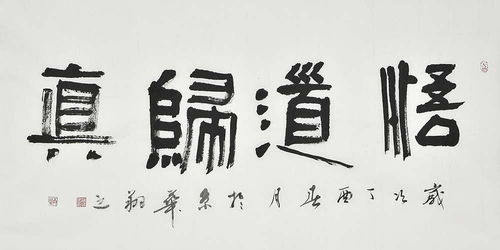 悟道歸真
歲次丁酉春月於京華翔之